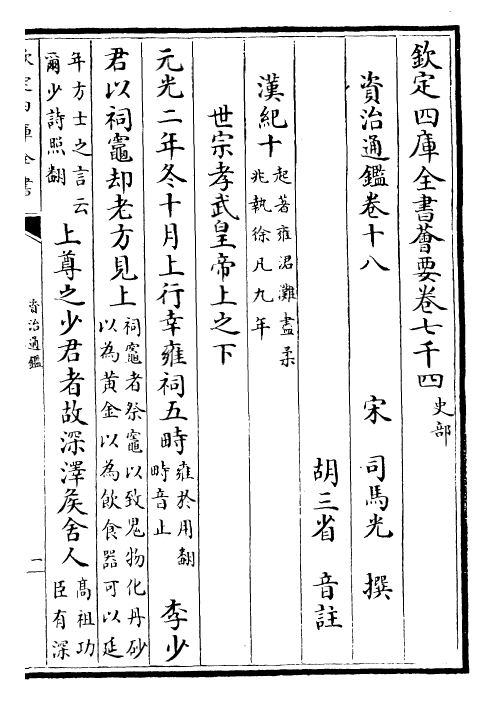 欽定四庫全書薈要卷七千四 史部
資治通鑑卷十八 宋 司馬光 撰
胡三省 音註
漢紀十 起著雍涒灘盡柔
兆執徐凡九年
世宗孝武皇帝上之下
元光二年冬十月上行幸雍祠五畤 雍於用翻
畤音止 李少
君以祠竈却老方見上 祠竈者祭竈以致鬼物化丹砂
以為黃金以為飲食器可以延
年方士之言云
爾少詩照翻 上尊之少君者故深澤矦舍人 高祖功
臣有深
欽定四庫全書
資治通鑑
一